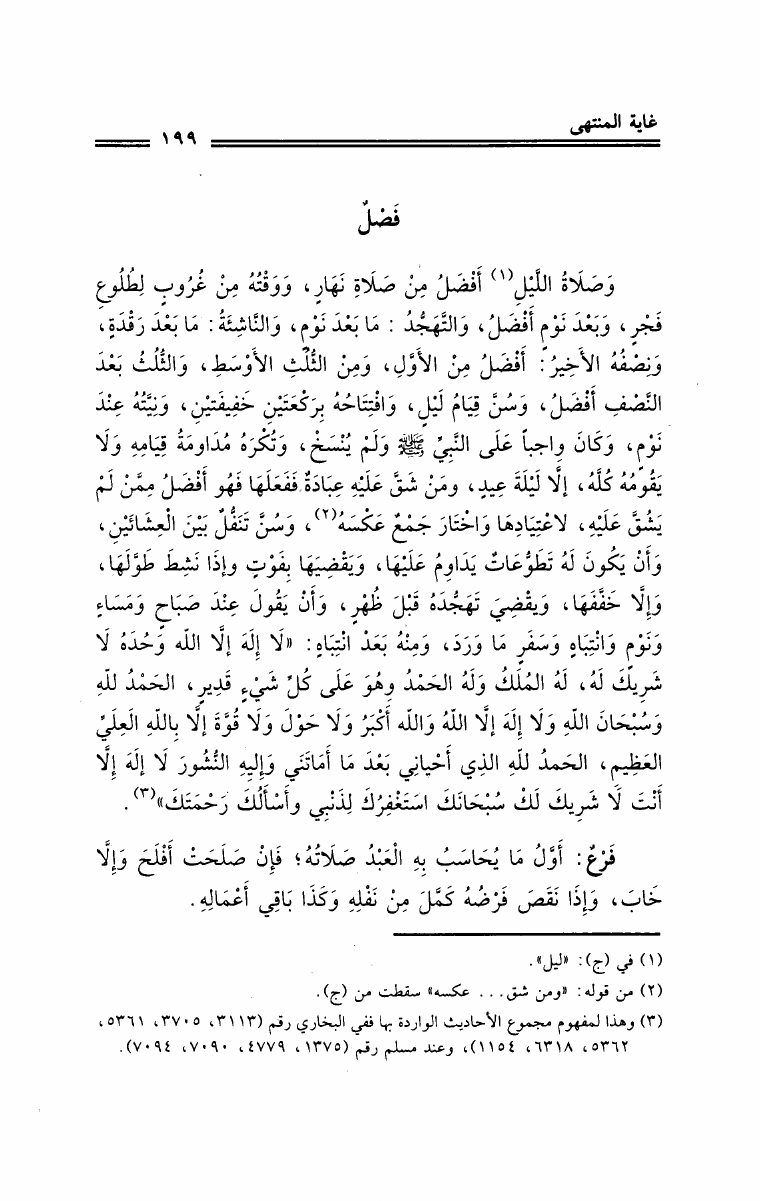 غاية المنتهى
١٩٩
فَصْلٌ
وَصَلَاةُ اللَّيْلِ(١) أَفْضَلُ مِنْ صَلَاةِ نَهَارٍ، وَوَقْتُهُ مِنْ غُرُوبٍ لِطُلُوعِ
فَجْرٍ، وَبَعْدَ نَوْمٍ أَفْضَلُ، وَالتَّهَجُّدُ : مَا بَعْدَ نَوْمٍ، وَالنَّاشِئَةُ: مَا بَعْدَ رَقْدَةٍ،
وَنِصْفُهُ الأَخِيرُ: أَفْضَلُ مِنَ الأَوَّلِ، وَمِنَ الثُّلُثِ الأَوْسَطِ، وَالثُّلُثُ بَعْدَ
النِّصْفِ أَفْضَلُ، وَسُنَّ قِيَامُ لَيْلٍ، وَافْتِتَاحُهُ بِرَكْعَتَيْنِ خَفِيفَتَيْنِ، وَنِيَّتُهُ عِنْدَ
نَوْمٍ، وَكَانَ واجِباً عَلَى النَّبِيِّ ﷺ وَلَمْ يُنْسَخْ، وَتُكْرَهُ مُدَاومَةُ قِيَامِهِ وَلَا
يَقُومُهُ كُلَّهُ، إلَّا لَيْلَةَ عِيدٍ، ومَنْ شَقَّ عَلَيْهِ عِبَادَةٌ فَفَعَلَهَا فَهُو أَفْضَلُ مِمَّنْ لَمْ
يَشُقَّ عَلَيْهِ، لاعْتِيَادِهَا وَاخْتَارَ جَمْعٌ عَكْسَهُ(٢)، وَسُنَّ تَنَفُّلٌ بَيْنَ الْعِشَائَيْنِ،
وَأَنْ يَكُونَ لَهُ تَطَوُّعَاتٌ يَدَاوِمُ عَلَيْهَا، وَيَقْضِيَهَا بِفَوْتٍ وإذَا نَشِطَ طَوَّلَهَا،
وَإِلَّا خَفَّفَهَا، وَيقْضِيَ تَهَجُّدَهُ قَبْلَ ظُهْرٍ، وَأَنْ يَقُولَ عِنْدَ صَبَاحٍ وَمَسَاءٍ
وَنَوْمٍ وَانْتِبَاهٍ وَسَفَرٍ مَا وَرَدَ، وَمِنْهُ بَعْدَ انْتِبَاهٍ: «لَا إِلَهَ إلَّا اللَّه وَحْدَهُ لَا
شَرِيكَ لَهُ، لَهُ المُلْكُ وَلَهُ الحَمْدُ وهُوَ عَلَى كُلِّ شَيْءٍ قَدِيرٍ، الحَمْدُ للَّهِ
وَسُبْحَانَ اللَّهِ وَلَا إِلَهَ إلَّا اللَّهُ وَاللَّه أَكْبَرُ وَلَا حَوْلَ وَلَا قُوَّةَ إلَّا بِاللَّهِ العِلَيِّ
العَظِيمِ، الحَمدُ للَّهِ الذِي أَحْياني بَعْدَ مَا أَمَاتَنَي وَإِليهِ النُّشُورَ لَا إلَهَ إلَّا
أَنْتَ لَا شَرِيكَ لَكْ سُبْحَانَكَ اسَتَغْفِرُكَ لِذَنْبِي وأَسْأَلُكَ رَحْمَتَكَ»(٣).
فَرْعٌ: أَوَّلُ مَا يُحَاسَبُ بِهِ الْعَبْدُ صَلَاتُهُ؛ فَإِنْ صَلَحَتْ أَفْلَحَ وَإِلَّا
خَابَ، وَإِذَا نَقَصَ فَرْضُهُ كَمَّلَ مِنْ نَفْلِهِ وَكَذَا بَاقِي أَعْمَالِهِ.
(١) في (ج): «ليل».
(٢) من قوله: «ومن شق... عكسه» سقطت من (ج).
(٣) وهذا لمفهوم مجموع الأحاديث الواردة بها ففي البخاري رقم (٣١١٣، ٣٧٠٥، ٥٣٦١،
٥٣٦٢، ٦٣١٨، ١١٥٤)، وعند مسلم رقم (١٣٧٥، ٤٧٧٩، ٧٠٩٠، ٧٠٩٤).